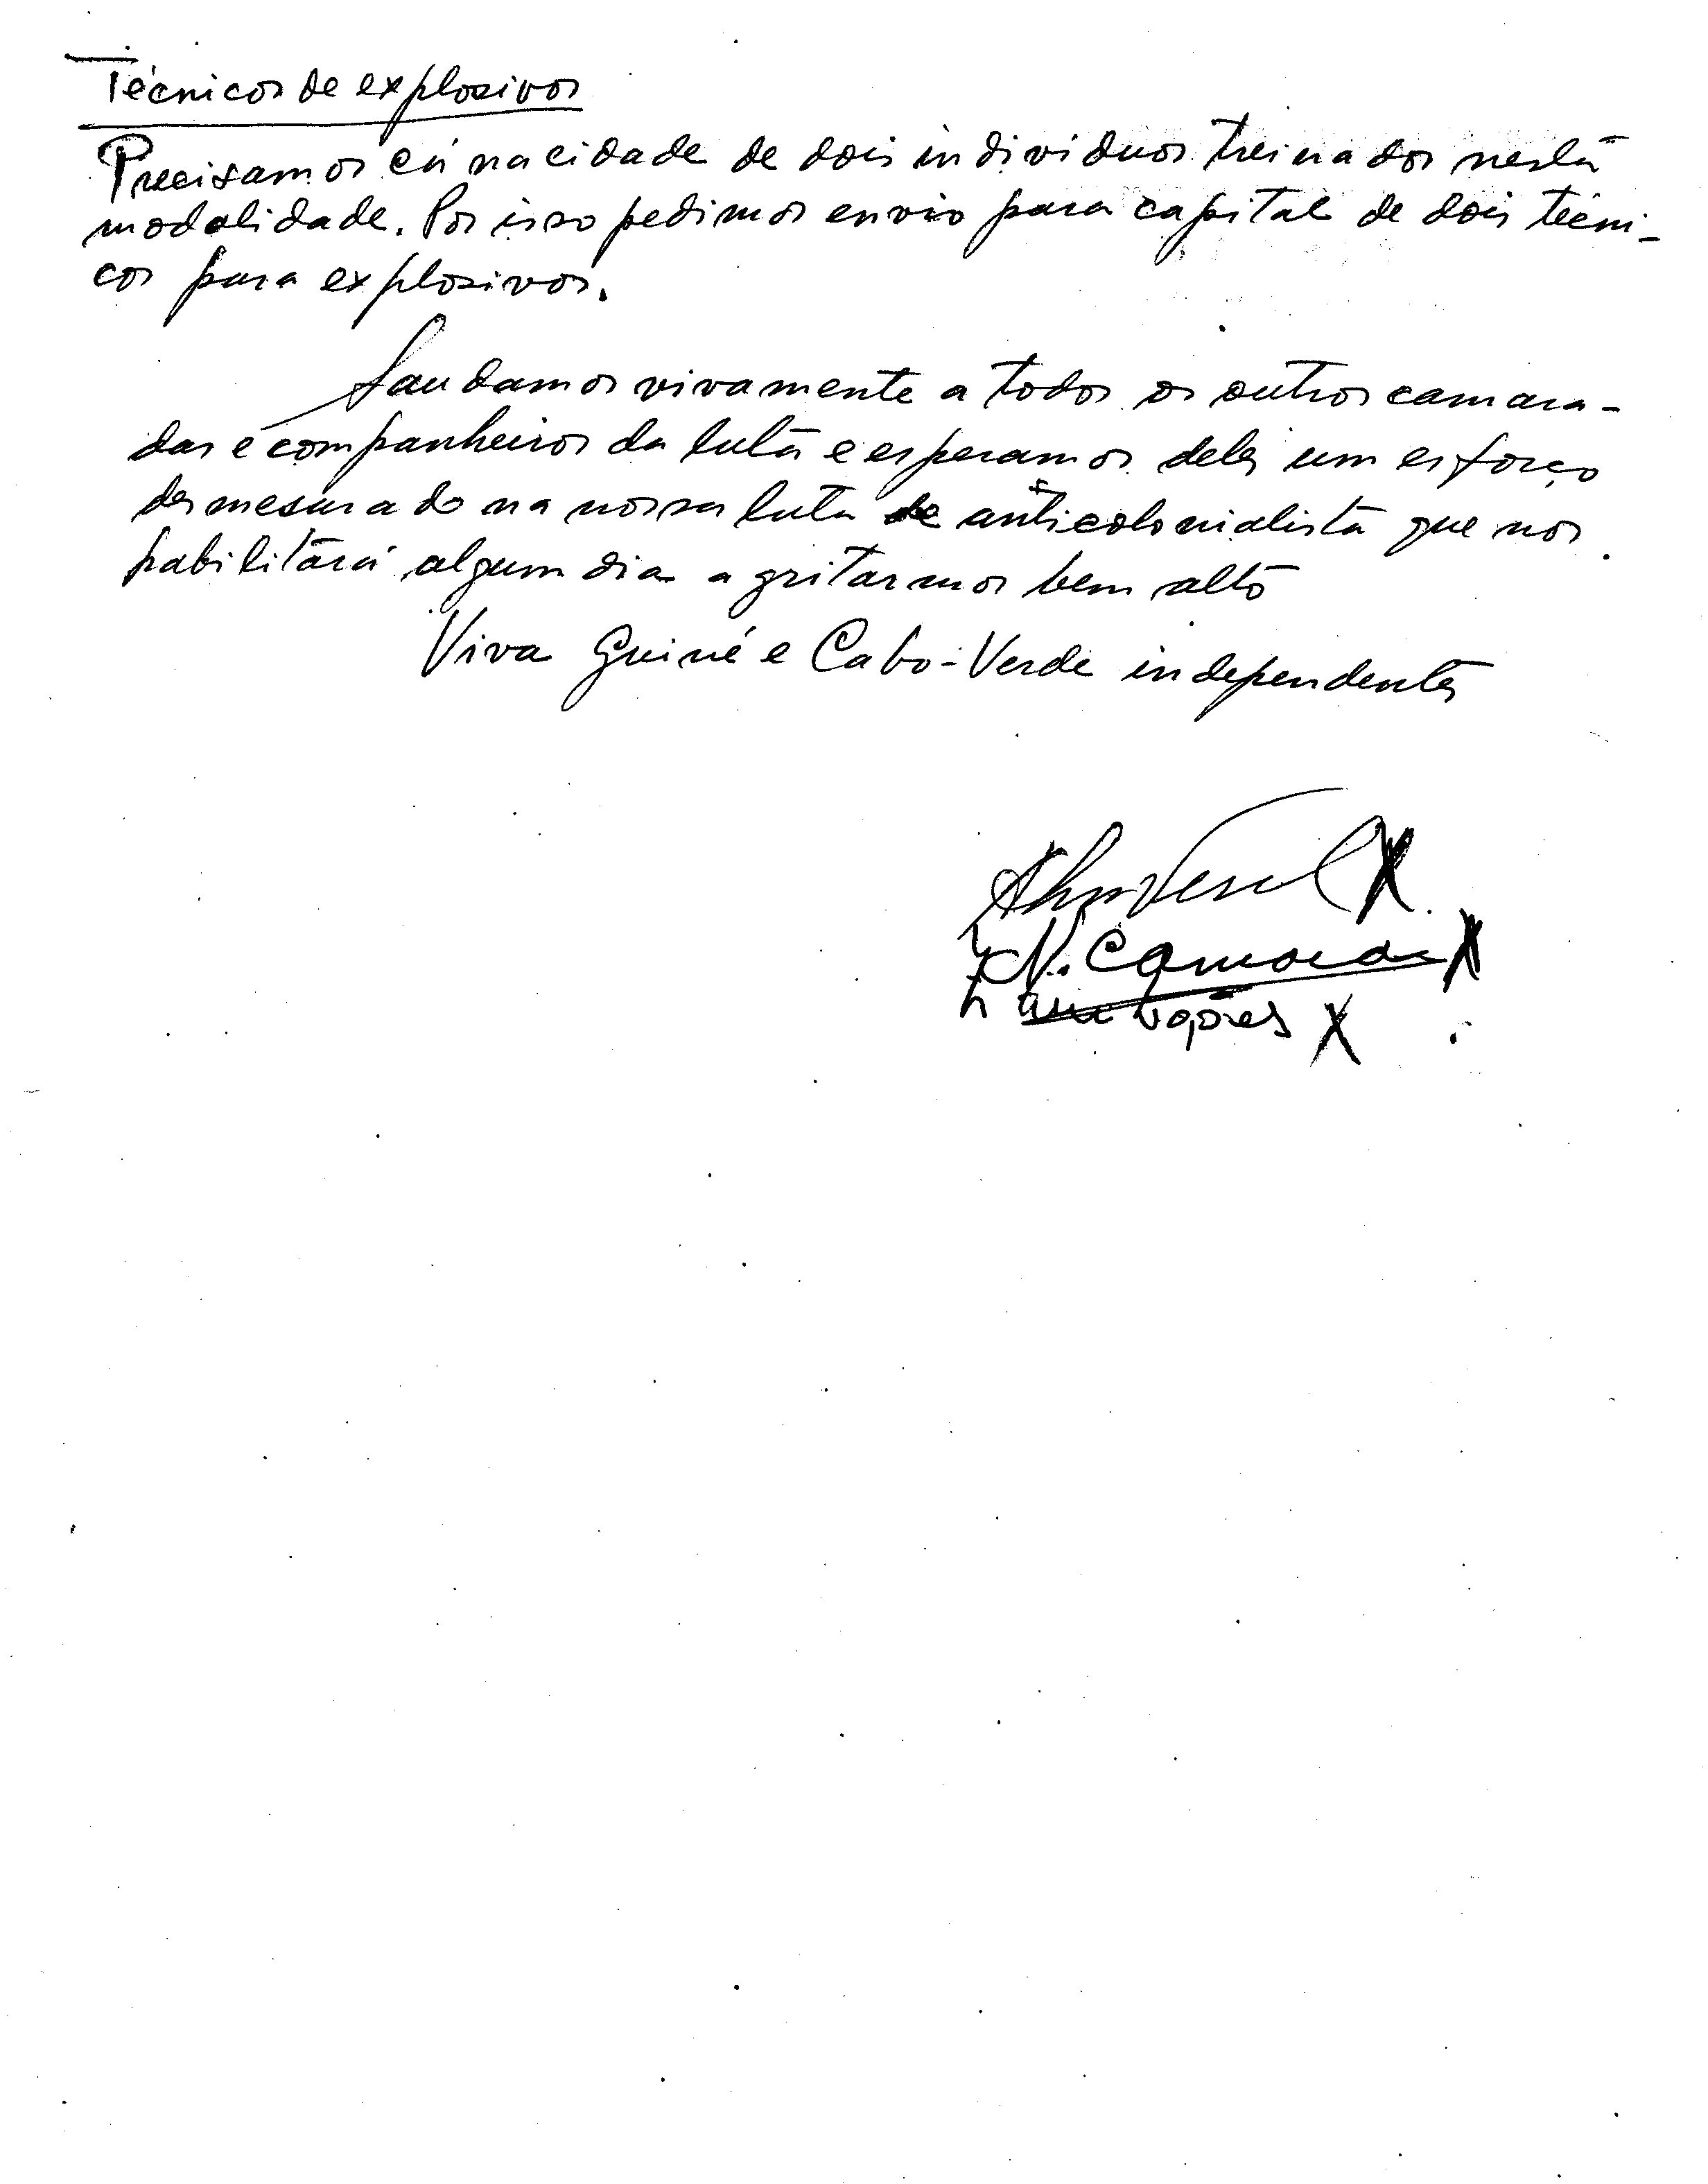 Técnicos de explosivos
Precisamos cá na cidade de dois individuos treinados nesta
modalidade. Por isso pedimos envio para capital de dois técni-
cos para explosivos.
Saudamos vivamente a todos os outros camara-
das e companheiros da luta e esperamos deles um esforço
desmesurado na nossa luta de anticolonialista que nos
habilitará algum dia a gritarmos bem alto
Viva Guiné e Cabo-Verde independentes
N. Camará X
X